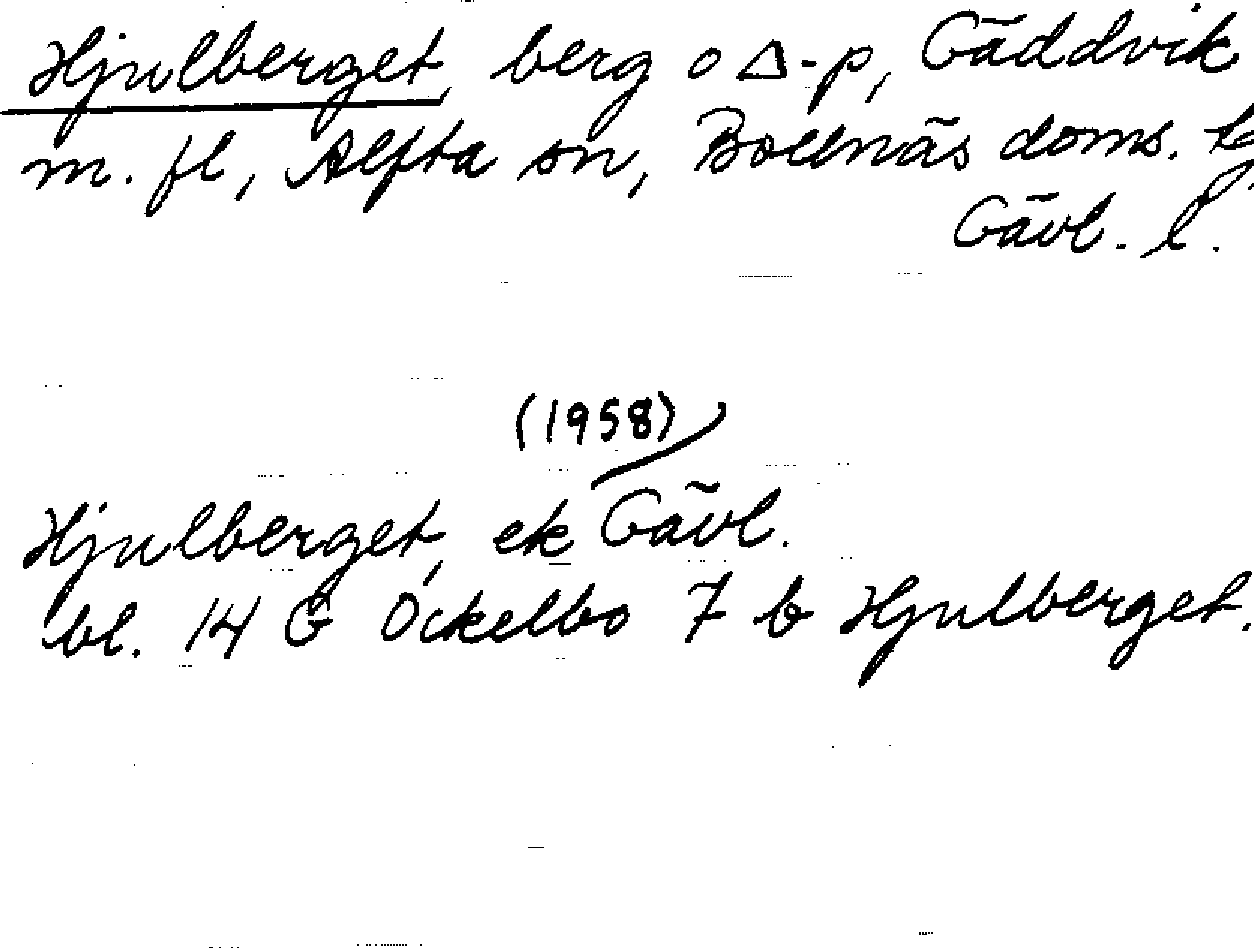 Hjulberget, berg o Δ-p, Gäddvik
m. fl, Alfta sn, Bollnäs doms. tg,
Gävl. l.
(1958)
Hjulberget, ek Gävl.
bl. 14 G Ockelbo 7 b Hjulberget.